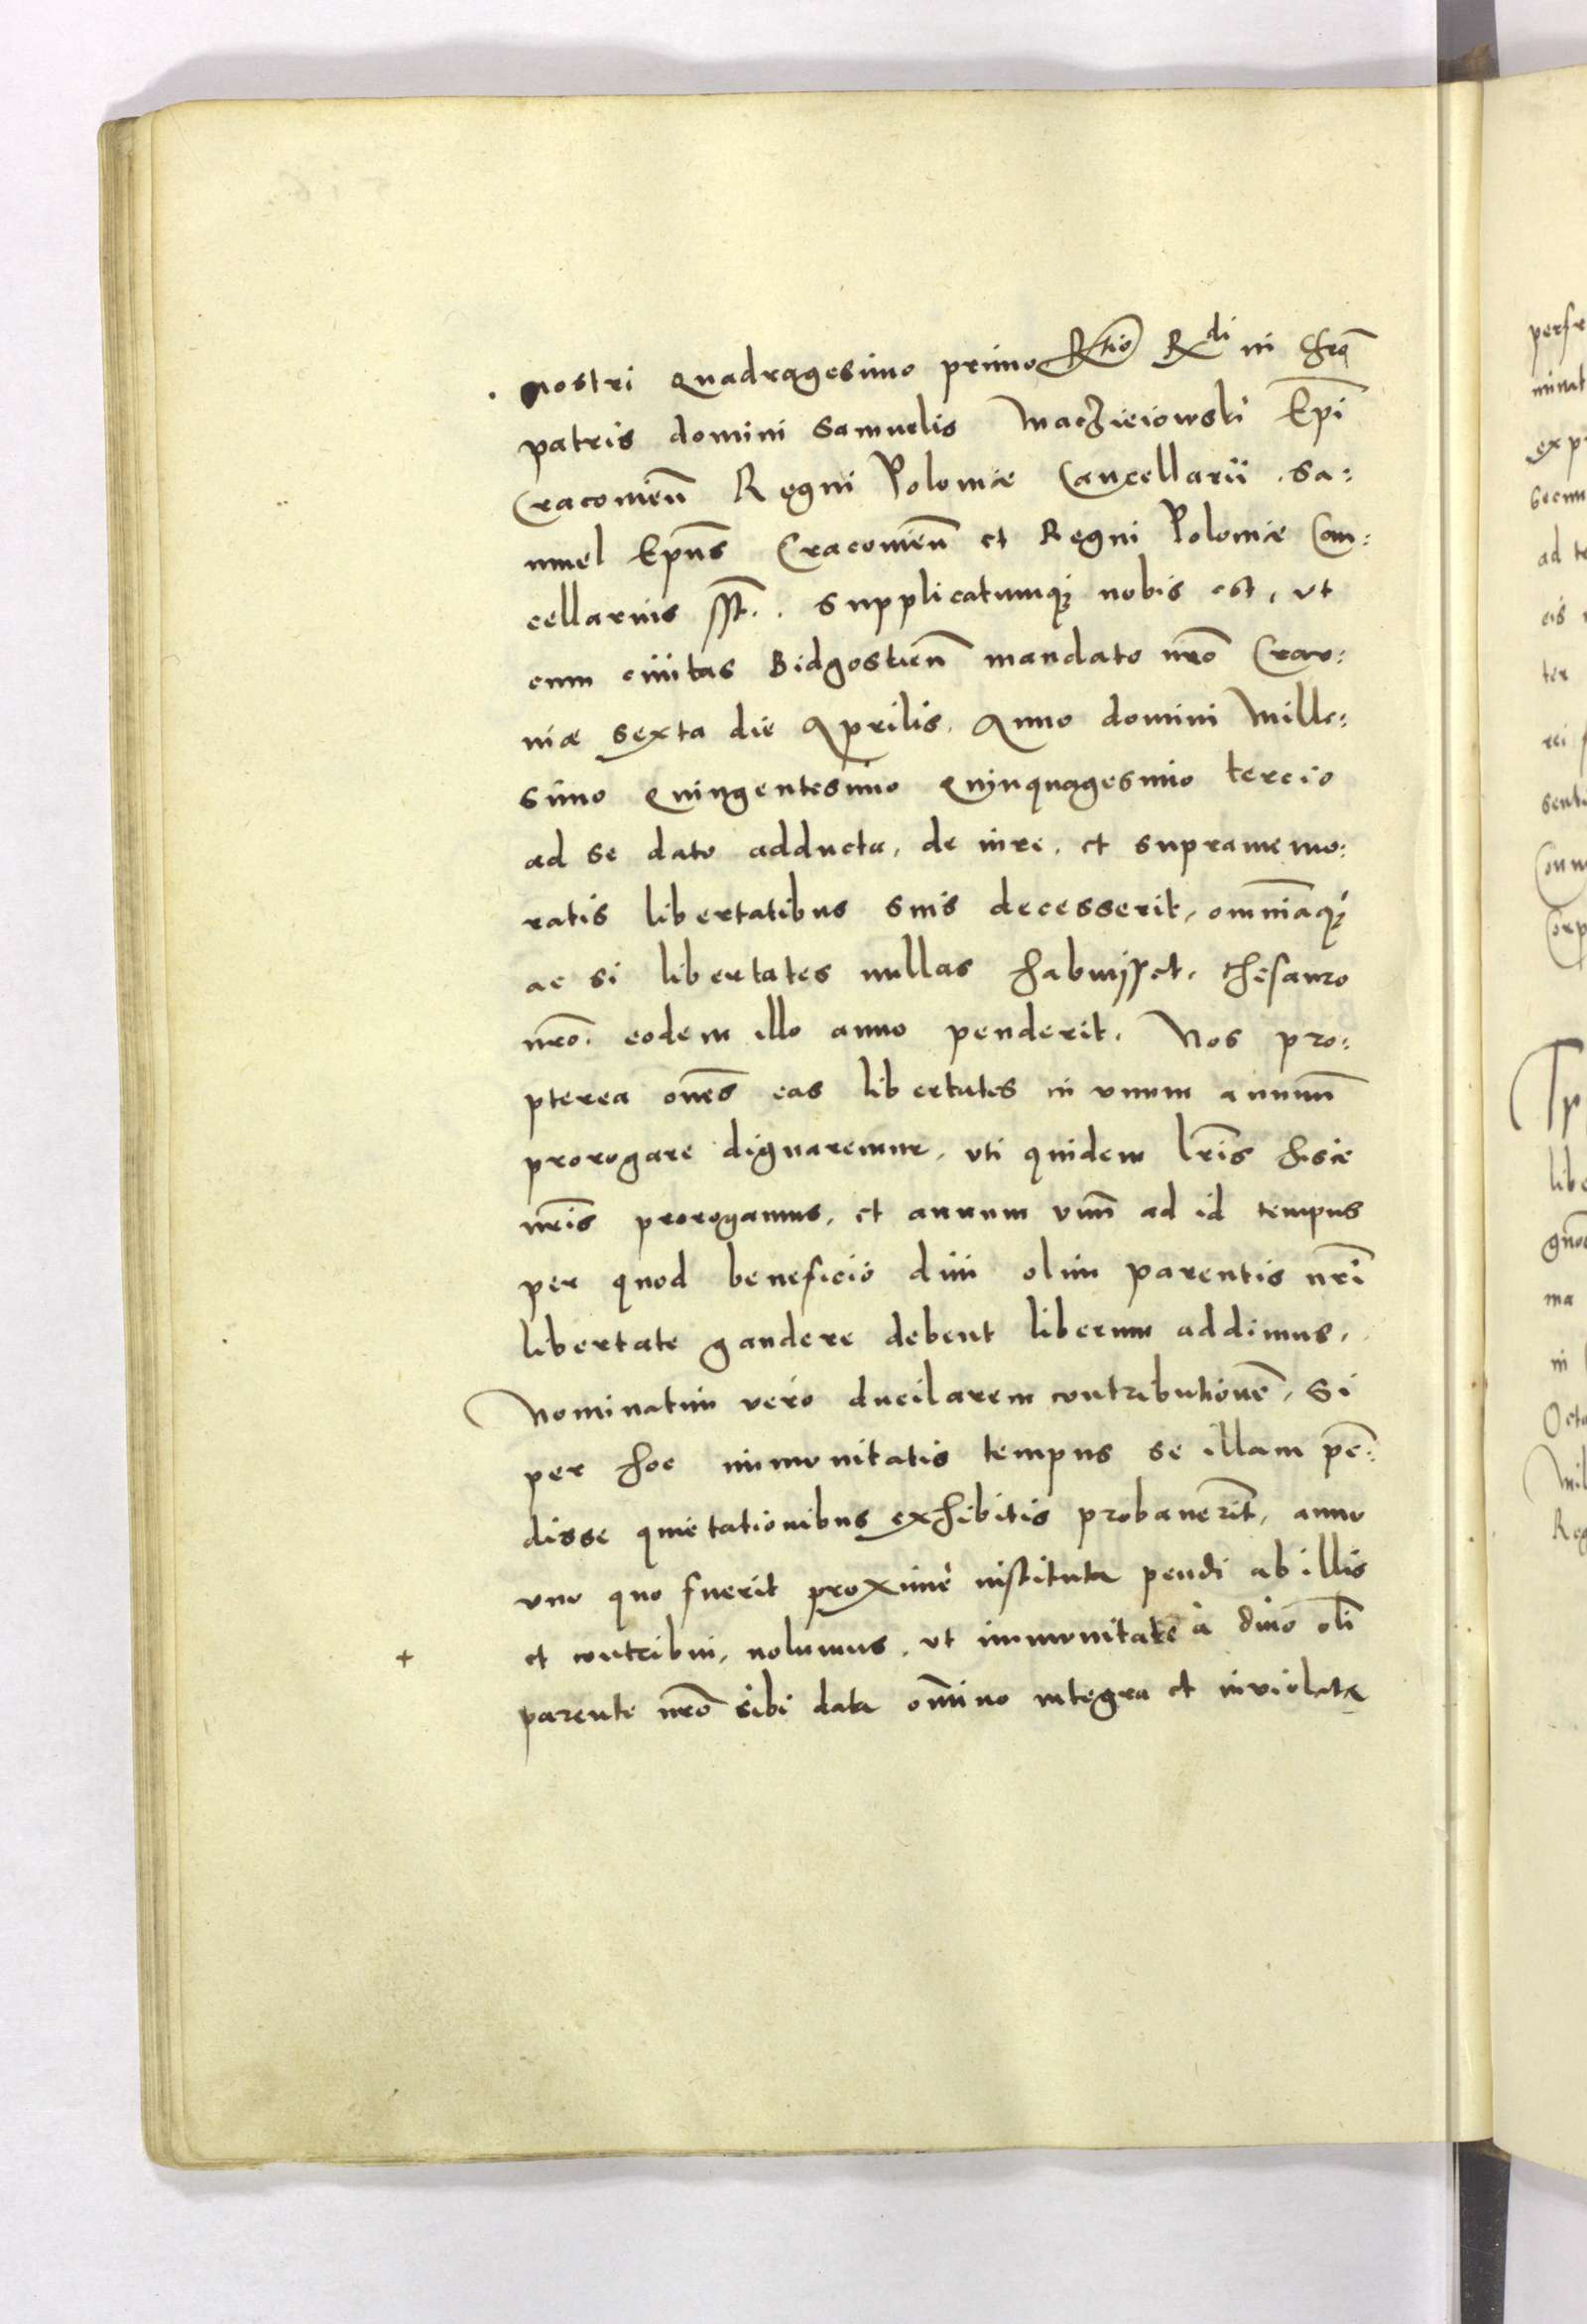 nostri quadragesimo primo Rtio Rdi in Chro
patris domini Samuelis Maczieiowski Epi
Cracouien̄ Regni Poloniæ Cancellarii. Sa:
muel Epūs Cracouien̄ et Regni Poloniæ Can:
cellarius sst. Supplicatumq; nobis est, vt
cum ciuitas Bidgostien̄ mandato nrō Craco:
niæ sexta die Aprilis. Anno domini Mille:
simo Quingentesimo Quinquagesimo tercio
ad se dato adducta, de iure, et supramemo:
ratis libertatibus suis decesserit, omniaq;
ac si libertates nullas habuisset, thesauro
nrō eodem illo anno penderit. Nos pro:
pterea oēs eas libertates in vnum annum̄
prorogare dignaremur, vti quidem lrīs hisce
nrīs prorogamus, et annum vnū ad id tempus
per quod beneficio diui olim parentis nrī
libertate gaudere debent liberum addimus.
Nominatim vero ducilarem contributionē, si
per hoc immunitatis tempus se illam pē:
disse quietationibus exhibitis probauerīt, anno
vno quo fuerit proximè instituta pendi ab illis
et contribui, nolumus, vt immunitatē à diuo olī
+ parente nrō sibi data om̄ino integra et inviolata
perfr
minat
exp
secun
ad te
eis
ter
rei
senti
Com
Corp
libe
gno
ma
in
Octa
Mil
Reg